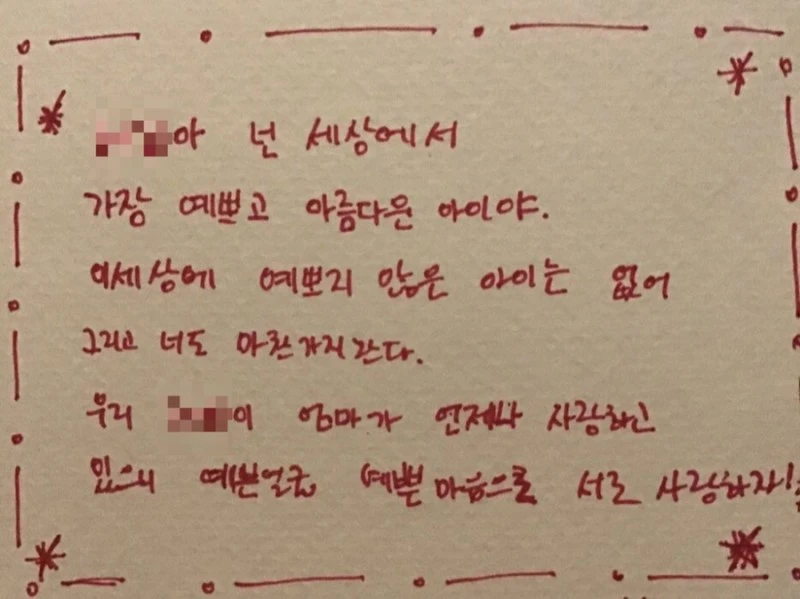 아 넌 세상에서
가장 예쁘고 아름다운 아이야.
이세상에 예쁘지 않은 아이는 없어
그리고 너도 마찬가지란다.
우리 이 엄마가 언제나 사랑하고
있으니 예쁜얼굴 예쁜 마음으로 서로 사랑하자!